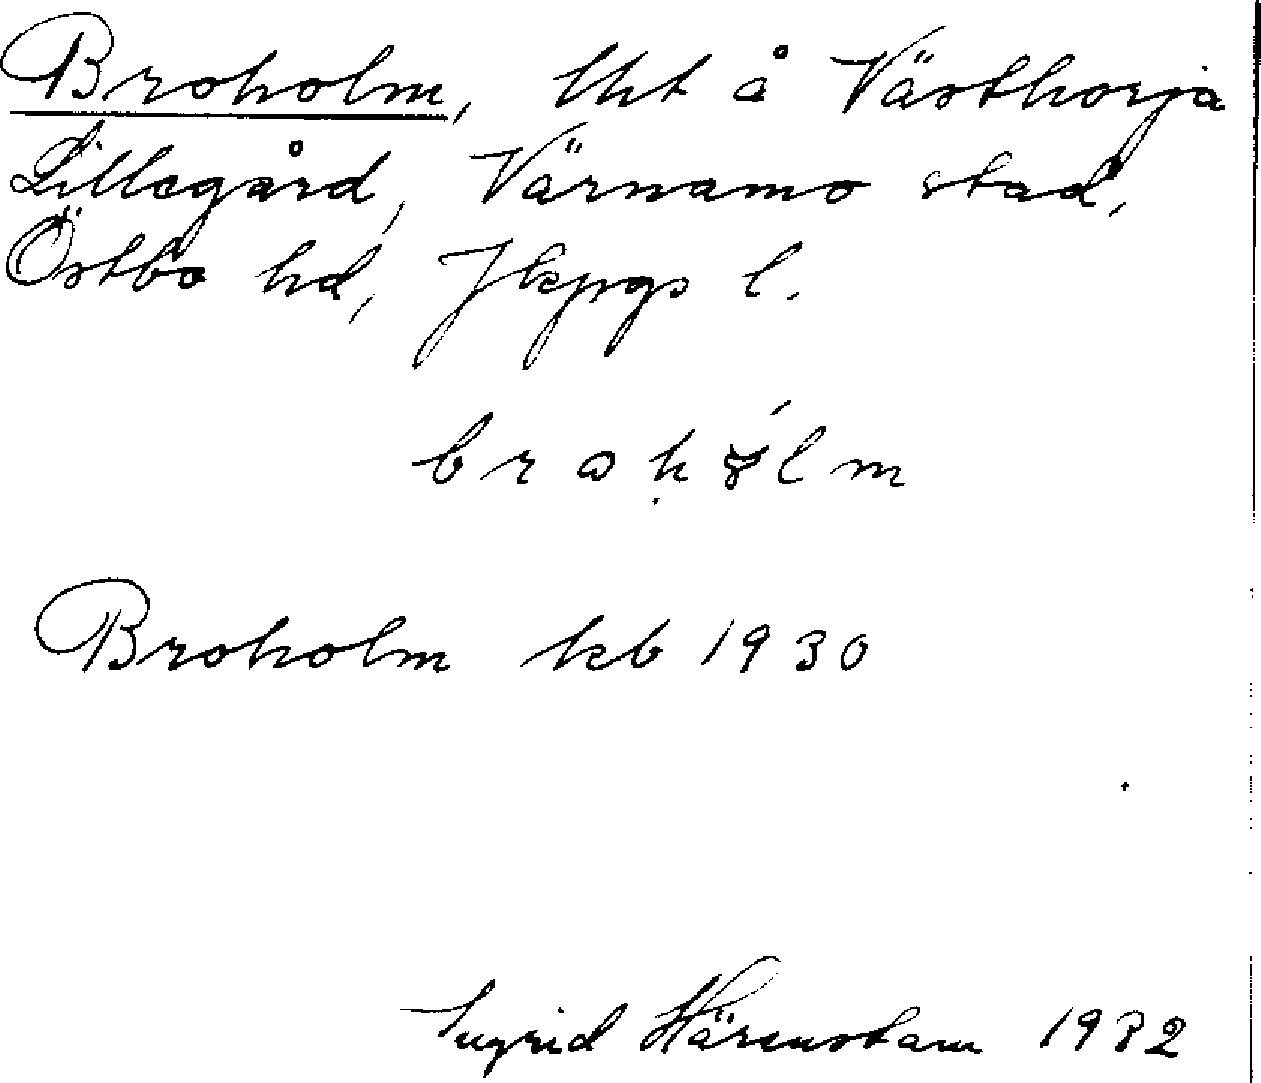 Broholm, lht å Västhorja
Lillegård, Värnamo stad,
Östbo hd, Jkpgs l.
brohólm
Broholm kb 1930
Ingrid Härenstam 1932